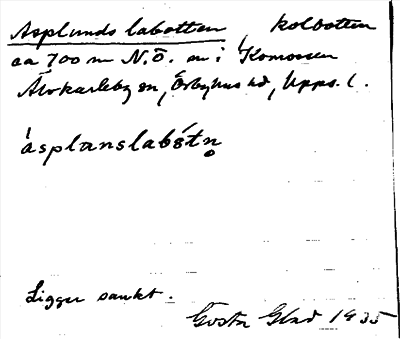 Asplundslabotten, kolbotten
ca 700 m N.Ö. om i Komossen
Älvkarleby sn, Örbyhus hd, Upps. l.
ásplanslabótn̥
Ligger sankt.
Gösta Glad 1935